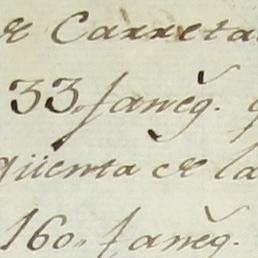 de Carreta
33. faneg.
qüenta de la
160. faneg.